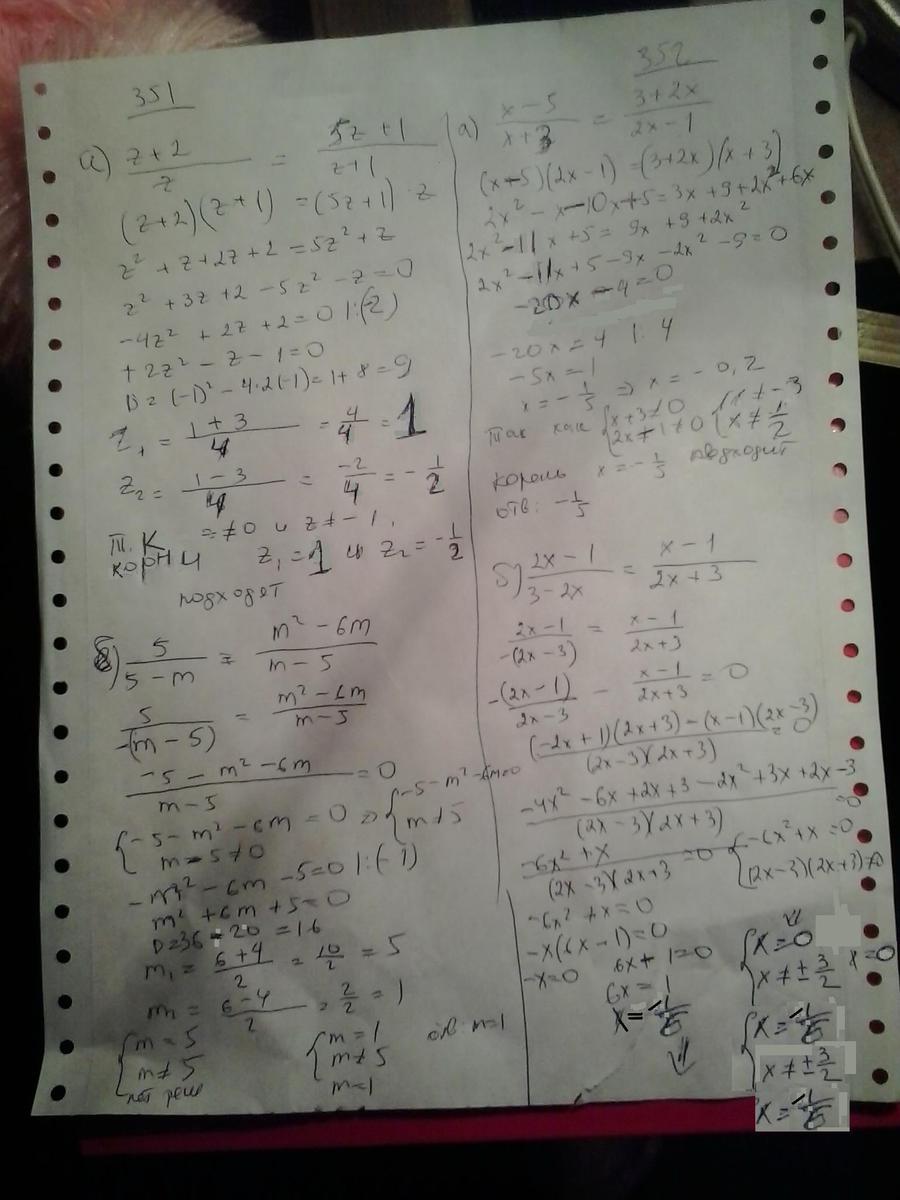 351
а) (z+2)/z = (5z+1)/(z+1)
(z+2)(z+1) = (5z+1) z
z² + z + 2z + 2 = 5z² + z
z² + 3z + 2 - 5z² - z = 0
-4z² + 2z + 2 = 0 |:(-2)
+ 2z² - z - 1 = 0
D = (-1)² - 4·2(-1) = 1 + 8 = 9
z₁ = (1+3)/4 = 4/4 = 1
z₂ = (1-3)/4 = -2/4 = -1/2
т.к z ≠ 0 и z ≠ -1,
корни z₁ = 1 и z₂ = -1/2
подходят
б) 5/(5-m) = (m² - 6m)/(m-5)
5/(-(m-5)) = (m² - 6m)/(m-5)
(-5 - m² - 6m)/(m-5) = 0
{-5 - m² - 6m = 0 => {-5 - m² - 6m = 0
m - 5 ≠ 0 m ≠ 5
-m² - 6m - 5 = 0 |:(-1)
m² + 6m + 5 = 0
D = 36 - 20 = 16
m₁ = (6+4)/2 = 10/2 = 5
m = (6-4)/2 = 2/2 = 1
{m = 5 {m = 1 отв: m=1
m ≠ 5 m ≠ 5
нет реше m=1
352
а) (x-5)/(x+3) = (3+2x)/(2x-1)
(x-5)(2x-1) = (3+2x)(x+3)
2x² - x - 10x + 5 = 3x + 9 + 2x² + 6x
2x² - 11x + 5 = 9x + 9 + 2x²
2x² - 11x + 5 - 9x - 2x² - 9 = 0
-20x - 4 = 0
-20x = 4 |: 4
-5x = 1
x = -1/5 => x = -0,2
так как {x+3 ≠ 0 {x ≠ -3
2x - 1 ≠ 0 x ≠ 1/2
корень x = -1/5 подходит
отв: -1/5
б) (2x-1)/(3-2x) = (x-1)/(2x+3)
(2x-1)/(-(2x-3)) = (x-1)/(2x+3)
-(2x-1)/(2x-3) - (x-1)/(2x+3) = 0
((-2x+1)(2x+3) - (x-1)(2x-3))/((2x-3)(2x+3)) = 0
(-4x² - 6x + 2x + 3 - 2x² + 3x + 2x - 3)/((2x-3)(2x+3)) = 0
(-6x² + x)/((2x-3)(2x+3) = 0 {-6x² + x = 0
(2x-3)(2x+3) ≠ 0
-6x² + x = 0
-x(6x-1) = 0
-x = 0 6x + 1 = 0
6x = 1
{x = 0
x ≠ ± 3/2 x = 0
{x ≠ ± 3/2